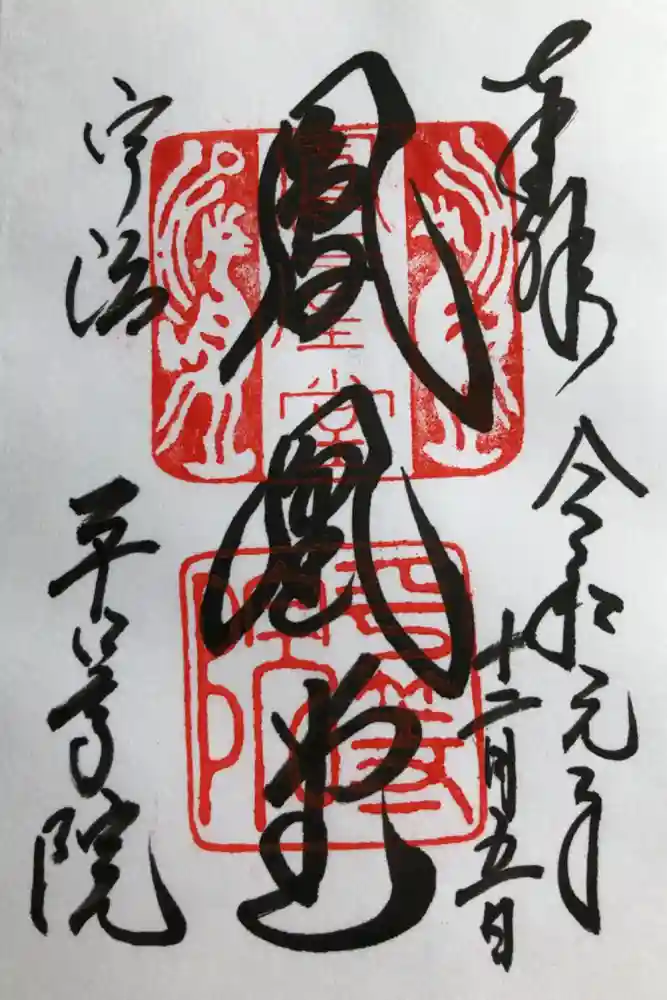 奉拝
令和元年
十二月五日
鳳凰堂
宇治
平等院
鳳凰堂
平等院印